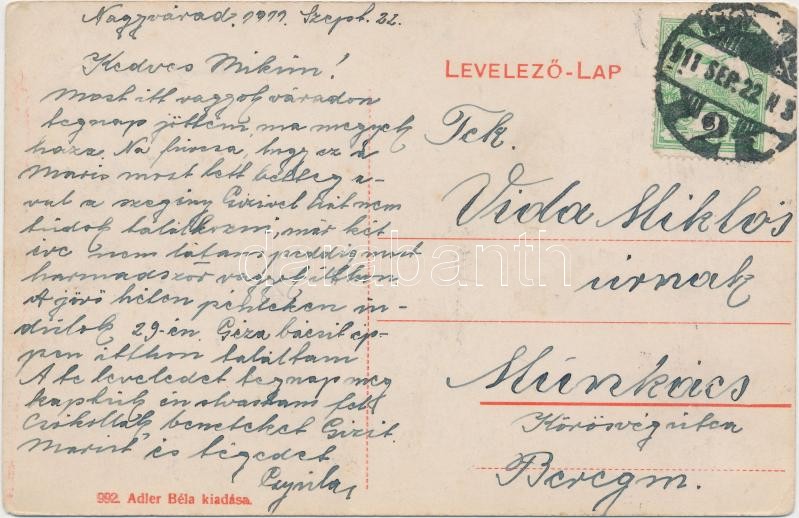 Nagyvárad, 1911. Szept. 22.
Kedves Mikim!
Most itt vagyok váradon
tegnap jöttem, ma megyek
haza. Na furcsa, hogy ez a
Maris most lett beteg a-
val a szegény Gizivel hát nem
tudok találkozni, már két
éve nem látam pedig most
harmadszor vagyok itthon
A jövő héten pénteken in-
dulok 29-én. Géza bácsit ép-
pen itthon találtam
A te leveledet tegnap meg
kaptuk én olvastam fel
Csókollak benneteket Gizit
Marist és tégedet
Gyula
992. Adler Béla kiadása.
LEVELEZŐ-LAP
911 SEP. 22 N 3
2
Tek.
Vida Miklós
úrnak
Munkács
Körösvég utca
Beregm.
darabanth